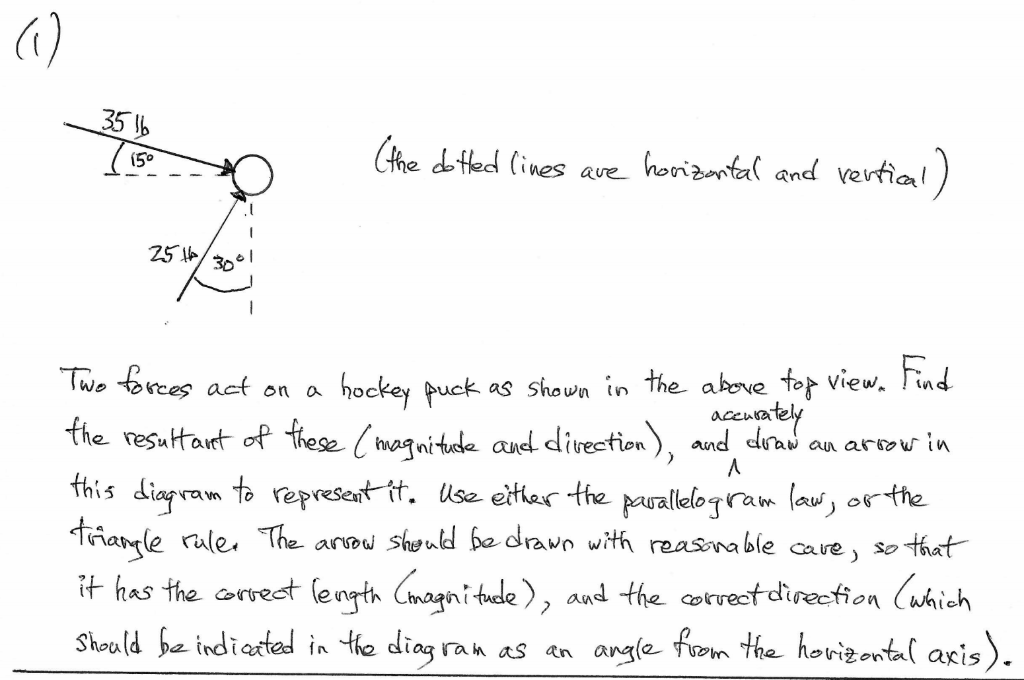 (1)
35 lb
15°
(the dotted lines are horizontal and vertical)
25 lb
30°
Two forces act on a hockey puck as shown in the above top view. Find
the resultant of these (magnitude and direction), and accurately draw an arrow in
this diagram to represent it. Use either the parallelogram law, or the
triangle rule. The arrow should be drawn with reasonable care, so that
it has the correct length (magnitude), and the correct direction (which
should be indicated in the diagram as an angle from the horizontal axis).